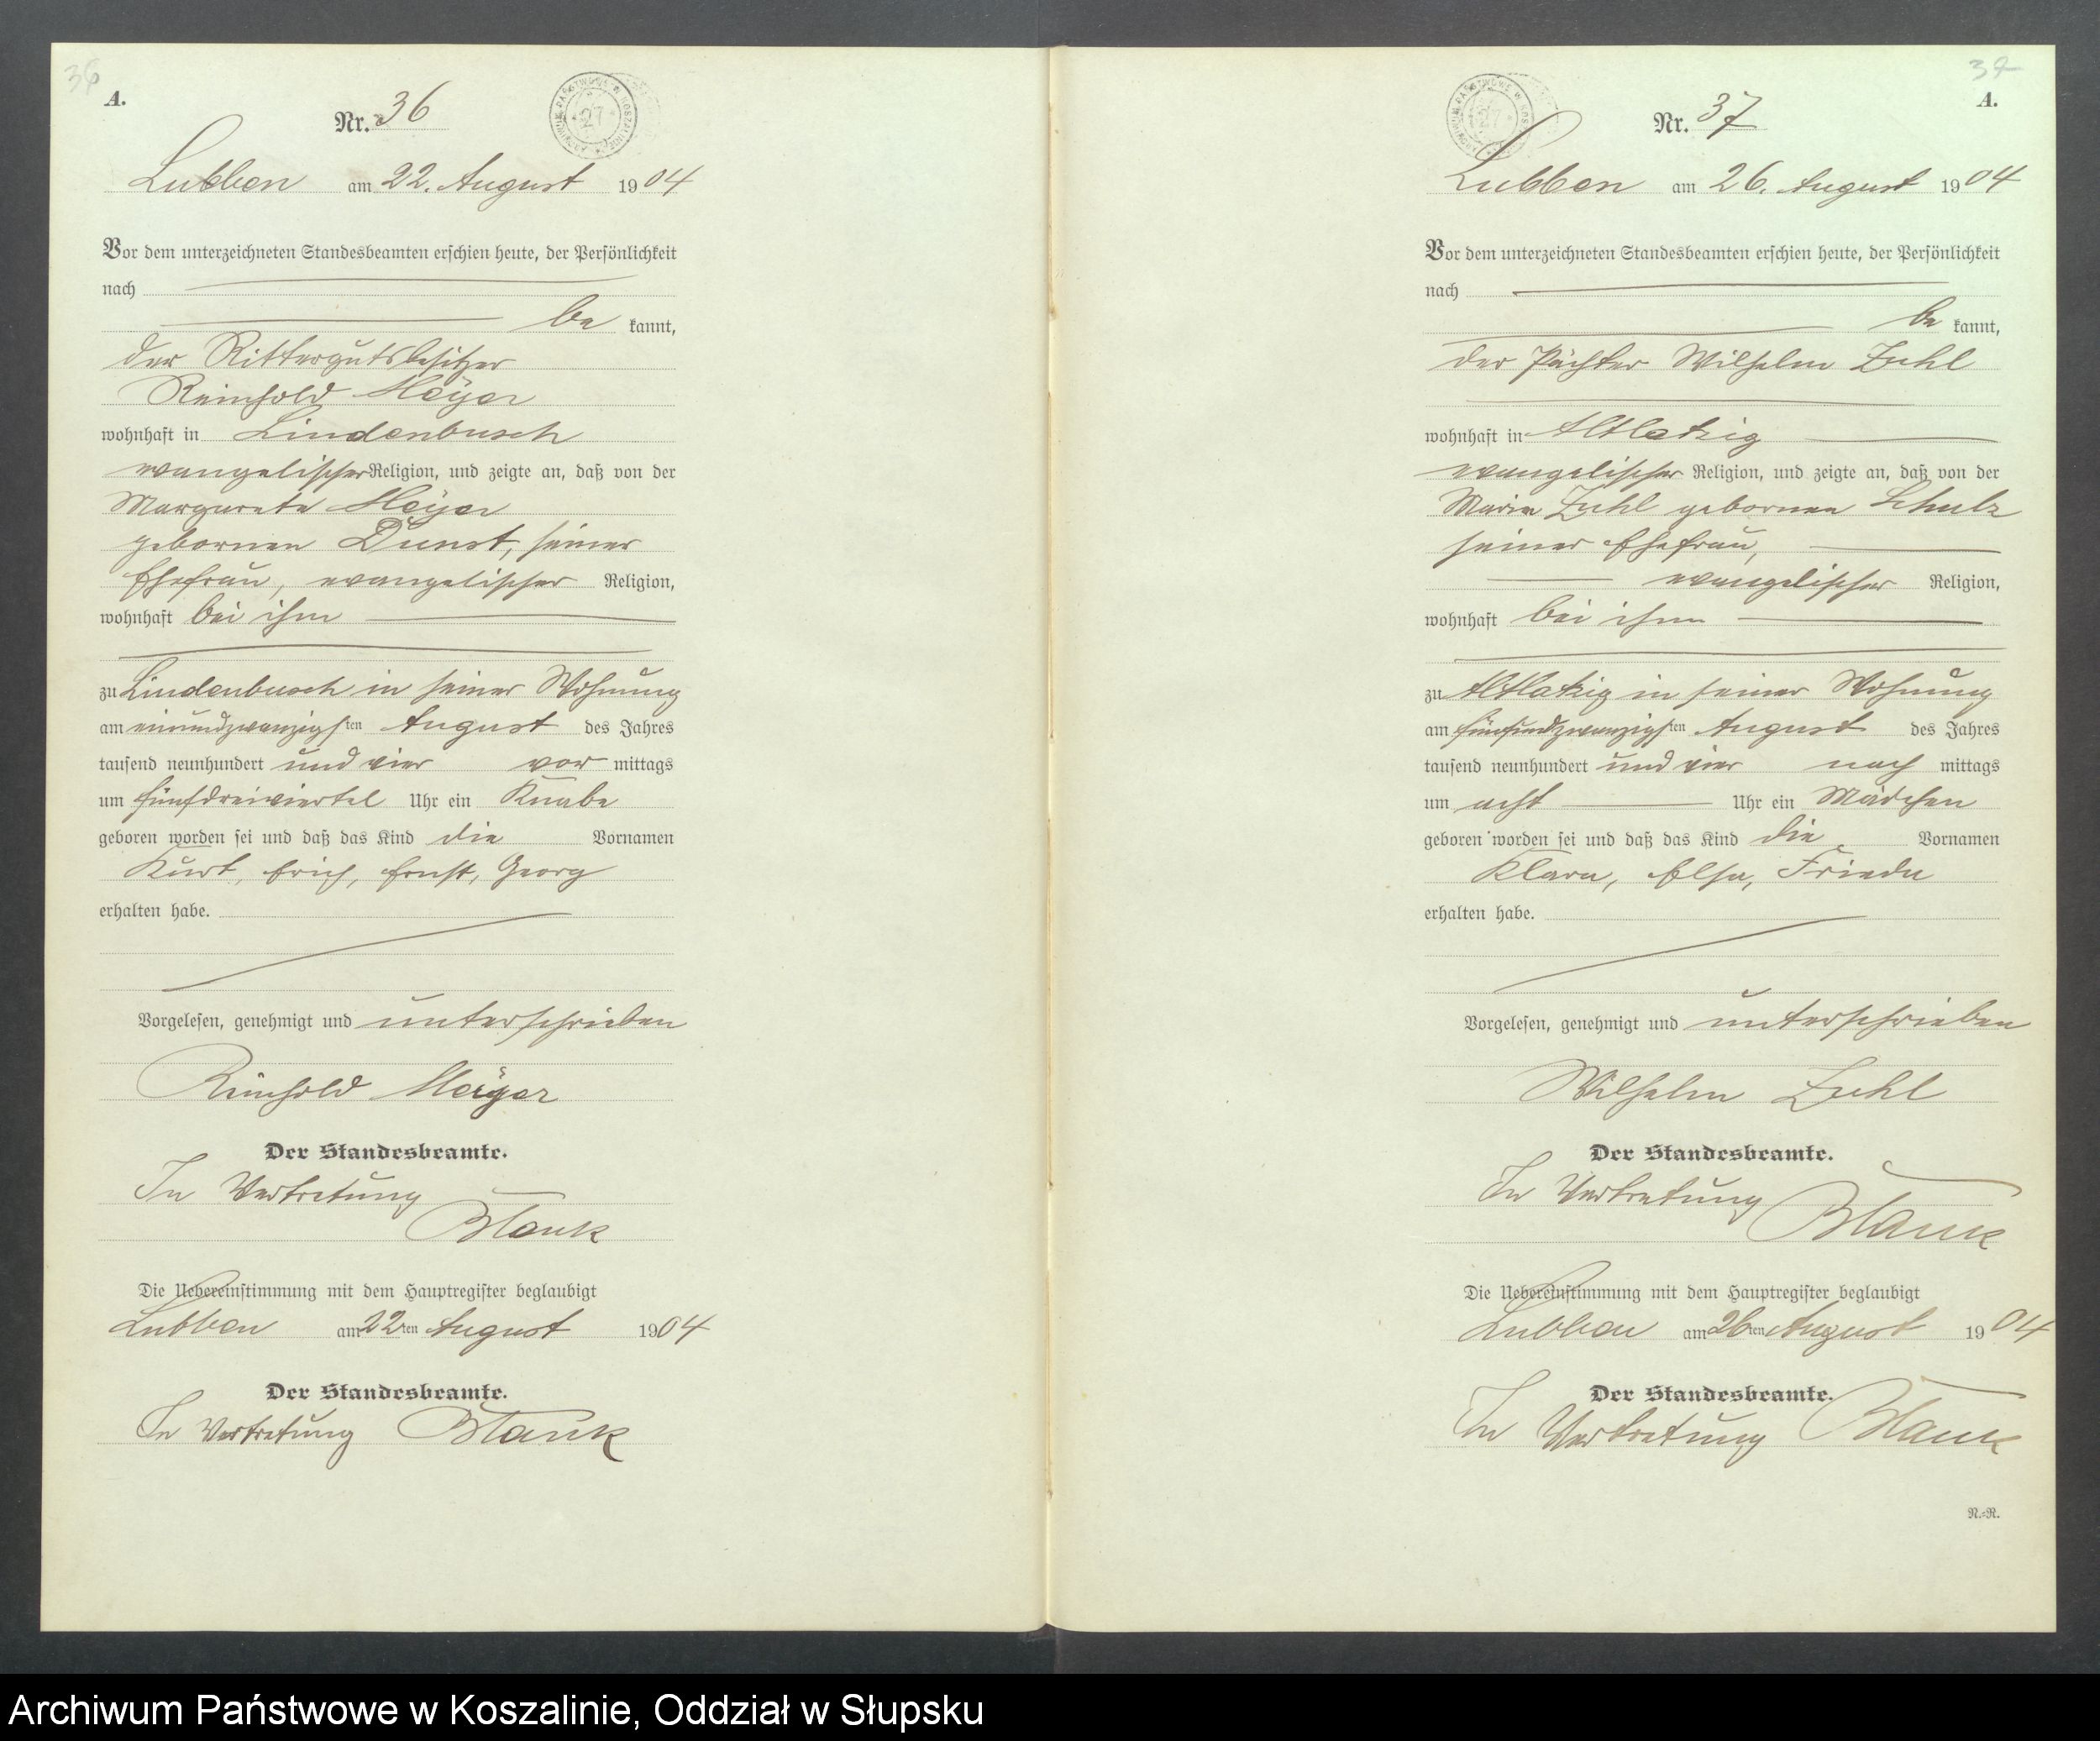 36
A.
Nr. 36
Lubben am 22. August 1904
Vor dem unterzeichneten Standesbeamten erschien heute, der Persönlichkeit
nach
be kannt,
der Rittergutsbesitzer
Reinhold Meÿer
wohnhaft in Lindenbusch
evangelischer Religion, und zeigte an, daß von der
Margarete Meÿer
gebornen Dunst, seiner
Ehefrau, evangelischer Religion,
wohnhaft bei ihm
zu Lindenbusch in seiner Wohnung
am einundzwanzigsten August des Jahres
tausend neunhundert und vier vor mittags
um fünfdreiviertel Uhr ein Knabe
geboren worden sei und daß das Kind die Vornamen
Kurt, Erich, Ernst, Georg
erhalten habe.
Vorgelesen, genehmigt und unterschrieben
Reinhold Meÿer
Der Standesbeamte.
In Vertretung
Blank
Die Uebereinstimmung mit dem Hauptregister beglaubigt
Lubben am 22ten August 1904
Der Standesbeamte.
In Vertretung Blank
37
A.
Nr. 37
Lubben am 26. August 1904
Vor dem unterzeichneten Standesbeamten erschien heute, der Persönlichkeit
nach
be kannt,
der Pächter Wilhelm Zuhl
wohnhaft in Altlatzig
evangelischer Religion, und zeigte an, daß von der
Marie Zuhl gebornen Schulz
seiner Ehefrau,
evangelischer Religion,
wohnhaft bei ihm
zu Altlatzig in seiner Wohnung
am fünfundzwanzigsten August des Jahres
tausend neunhundert und vier nach mittags
um acht Uhr ein Mädchen
geboren worden sei und daß das Kind die Vornamen
Klara, Elsa, Frieda
erhalten habe.
Vorgelesen, genehmigt und unterschrieben
Wilhelm Zuhl
Der Standesbeamte.
In Vertretung
Blank
Die Uebereinstimmung mit dem Hauptregister beglaubigt
Lubben am 26ten August 1904
Der Standesbeamte.
In Vertretung Blank
N.=R.
Archiwum Państwowe w Koszalinie, Oddział w Słupsku